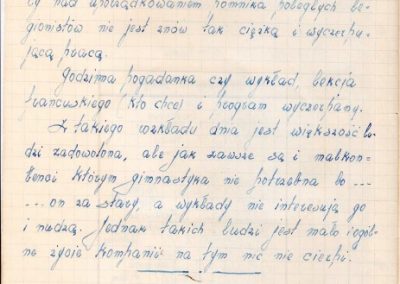 cy nad uporządkowaniem pomnika poległych le-
gionistów nie jest znów tak ciężką i wyczerpu-
jącą pracą.
Godzinna pogadanka czy wykład, lekcja
francuskiego (kto chce) i program wyczerpany.
Z takiego rozkładu dnia jest większość lu-
dzi zadowolona, ale jak zawsze są i malkon-
tenci którym gimnastyka nie potrzebna bo ---
... on za stary, a wykłady nie interesują go
i nudzą. Jednak takich ludzi jest mało i ogól-
ne życie kompanii na tym nic nie cierpi.